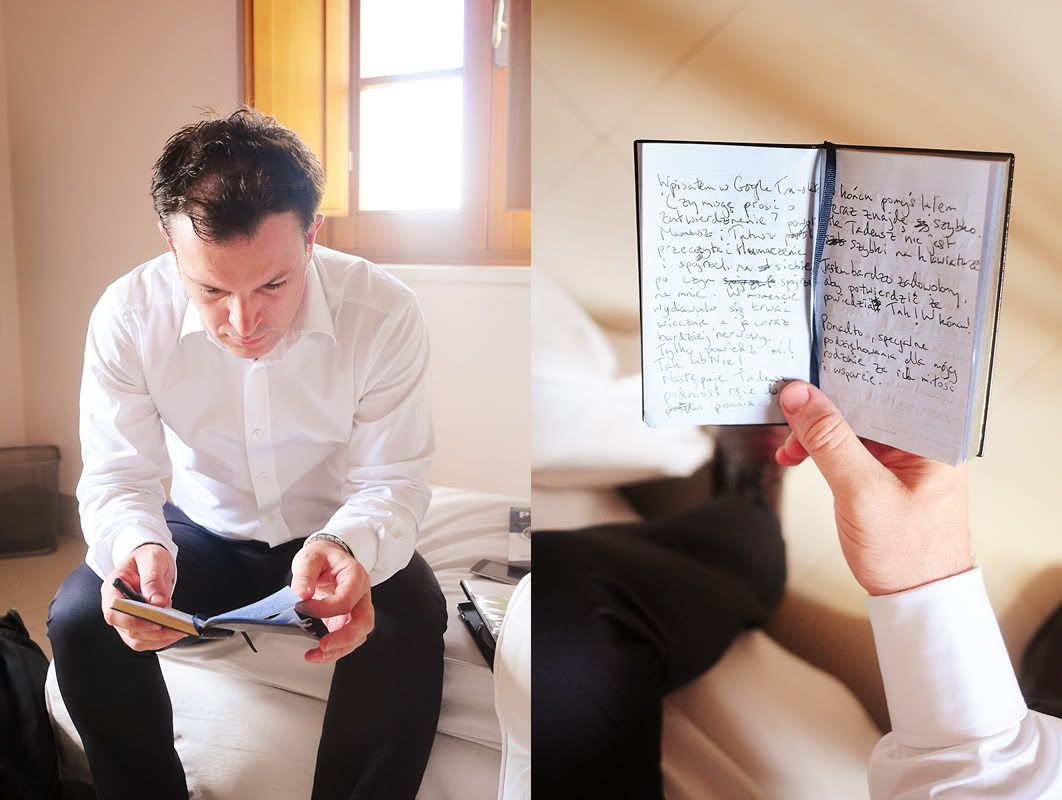 Wpisałem w Google Transl
"Czy mogę prosić o
zatwierdzenie?
Mamusz i Tatusz
przeczytać tłumaczenie
i spojrzeli na siebie
po czym spojrz
na mnie. W momencie
wydawało się trwać
wiecznie, a ja coraz
bardziej nerwowy.
Tylko powiedz mi!
Tak lub Nie!
Następnie Tadeusz
podniósł ręce do
pisania
końcu pomyślałem
teraz znajdę szybko.
Tadeusz nie jest
szybki na klawiaturze
Jestem bardzo zadowolony,
aby potwierdzić że
powiedział Tak! W końcu!
Ponadto, specjalne
podziękowania dla mojej
rodzinie za ich miłość
i wsparcie.